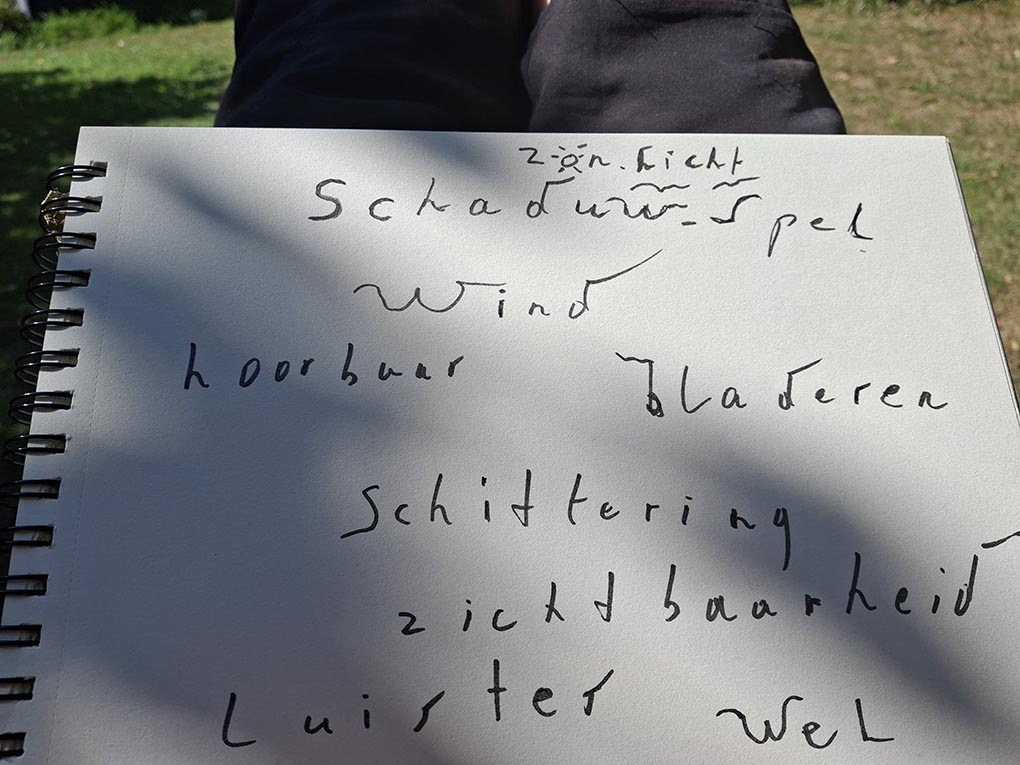 zon.licht
Schaduw-Spel
Wind
hoorbaar bladeren
Schittering
zichtbaarheid
Luister wel